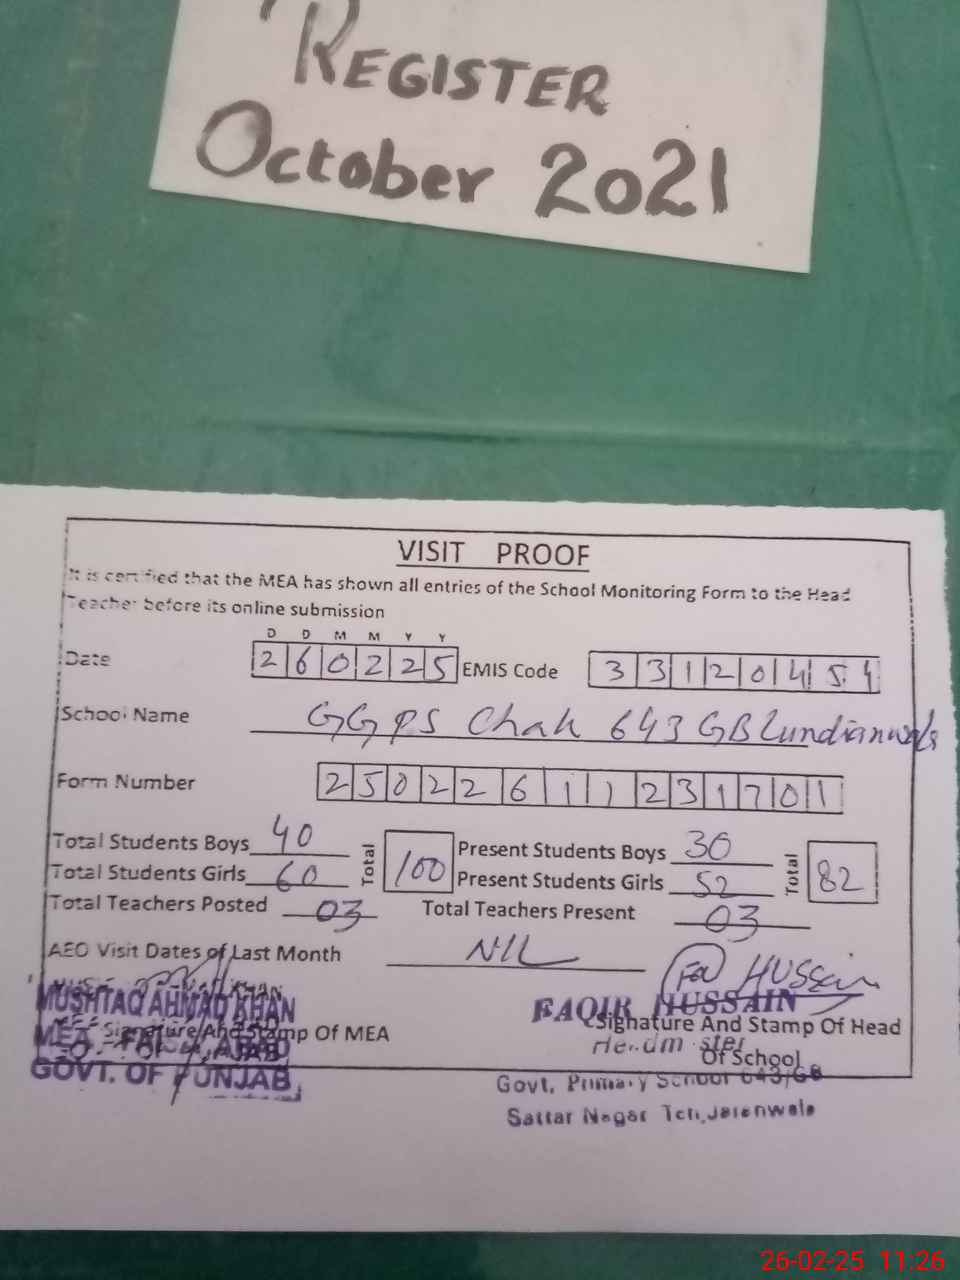 REGISTER
October 2021
VISIT PROOF
It is certified that the MEA has shown all entries of the School Monitoring Form to the Head
Teacher before its online submission
D D M M Y Y
Date 2 6 0 2 2 5 EMIS Code 3 3 1 2 0 4 5 4
School Name GGPS Chak 643 GB Lundianwala
Form Number 2 5 0 2 2 6 1 1 2 3 1 7 0 1
Total Students Boys 40 Total 100 Present Students Boys 30 Total 82
Total Students Girls 60 Present Students Girls 52
Total Teachers Posted 03 Total Teachers Present 03
AEO Visit Dates of Last Month NIL
Hussain
MUSHTAQ AHMAD KHAN FAQIR HUSSAIN
Signature And Stamp Of MEA Signature And Stamp Of Head
MEA
Of School
GOVT. OF PUNJAB Govt. Primary School 643/GB
Sattar Nagar Teh, Jaranwala
26-02-25 11:26